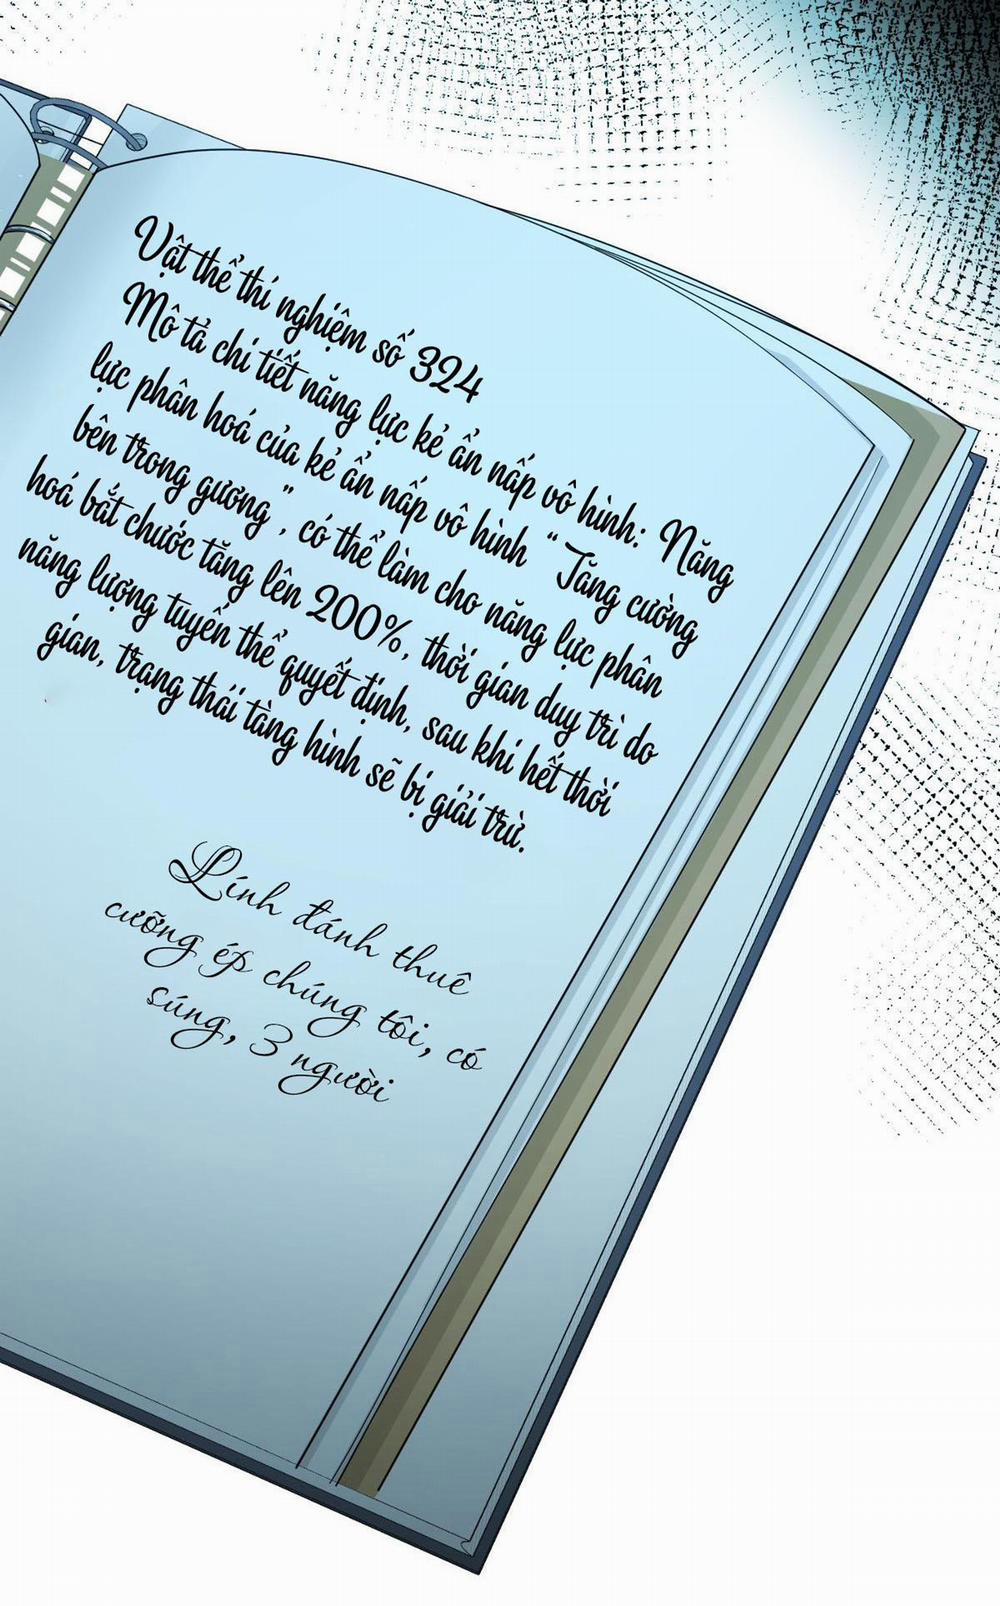 Vật thể thí nghiệm số 324
Mô tả chi tiết năng lực kẻ ẩn nấp vô hình: Năng
lực phân hoá của kẻ ẩn nấp vô hình “Tăng cường
bên trong gương”, có thể làm cho năng lực phân
hoá bắt chước tăng lên 200%, thời gian duy trì do
năng lượng tuyển thể quyết định, sau khi hết thời
gian, trạng thái tàng hình sẽ bị giải trừ.
Lính đánh thuê
cưỡng ép chúng tôi, có
súng, 3 người